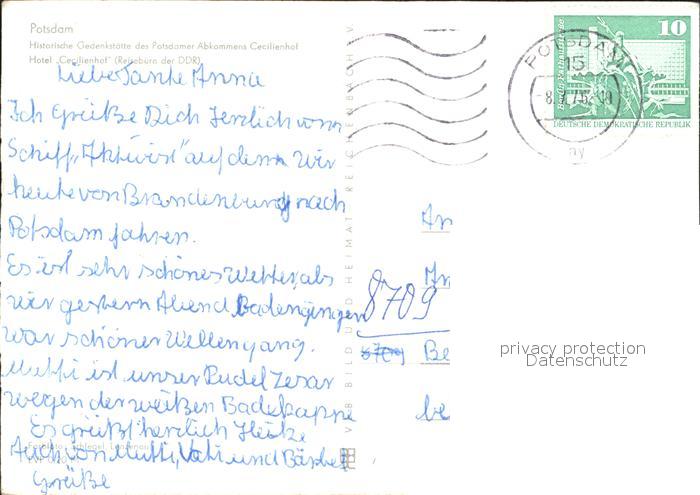 Potsdam
Historische Gedenkstätte des Potsdamer Abkommens Cecilienhof
Hotel „Cecilienhof" (Reisebüro der DDR)
Liebe Tante Anna
Ich Grüße Dich Herzlich vom
Schiff „Aktivist" auf dem wir
heute von Brandenburg nach
Potsdam fahren.
Es ist sehr schönes Wetter, als
wir gestern Abend Baden gingen
war schöner Wellengang.
Mutti ist unser Pudel
wegen der weißen Badekappe
Es grüßt herzlich
Auch von Mutti, Vati und Bärbel
Grüße
VEB BILD UND HEIMAT REICHENBACH I.V.
POTSDAM
15
10
DEUTSCHE DEMOKRATISCHE REPUBLIK
An
8709
6709
Be
be
privacy protection
Datenschutz